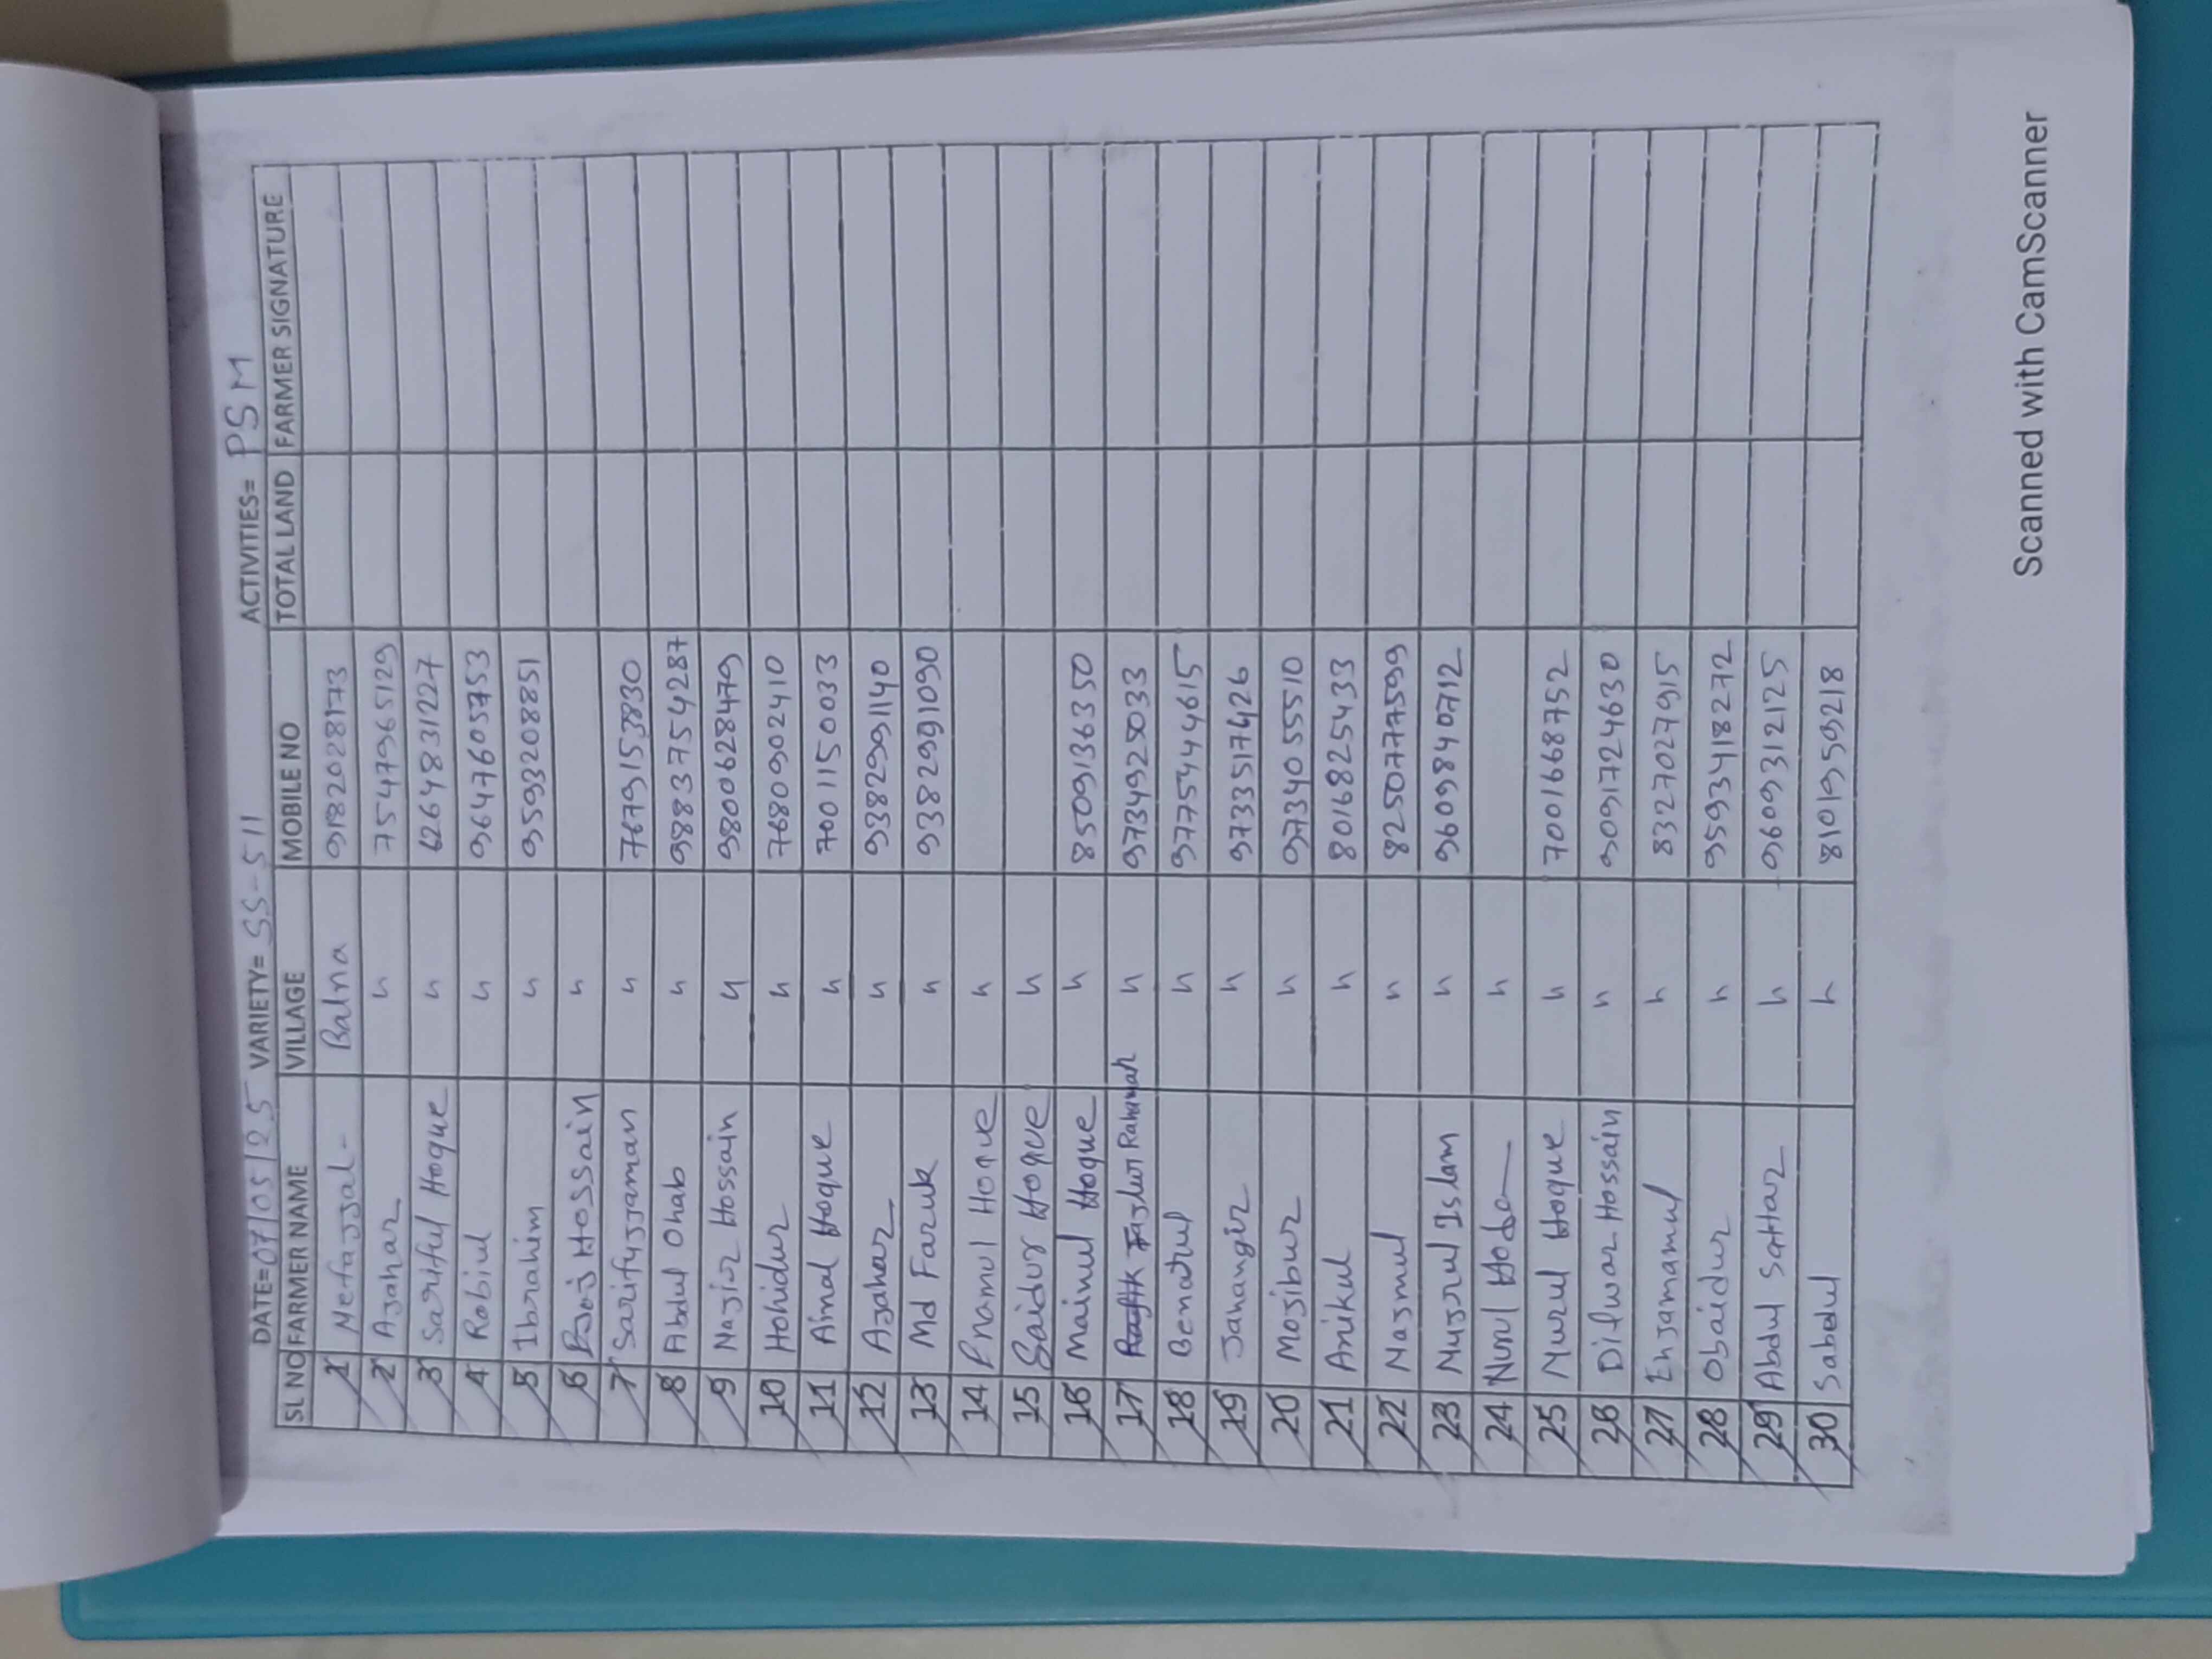 DATE= 07/05/25 VARIETY= SS-511 ACTIVITIES= PSM
SL NO FARMER NAME VILLAGE MOBILE NO TOTAL LAND FARMER SIGNATURE
1 Nefajjal- Balna 9182028173
2 Ajahar 〃 7547965129
3 Sariful Hoque 〃 6264831227
4 Robiul 〃 9647605753
5 Ibrahim 〃 9593208851
6 Hossain 〃
7 Sarifujjaman 〃 7679153830
8 Abdul Ohab 〃 9883754287
9 Najir Hossain 〃 9800628479
10 Hohidur 〃 7680902410
11 Ainal Hoque 〃 7001150033
12 Ajahar 〃 9382991140
13 Md Faruk 〃 9382991090
14 Enamul Hoque 〃
15 Saidur Hoque 〃
16 Mainul Hoque 〃 8509136350
17 Fajlur Rahaman 〃 9734925033
18 Benatul 〃 9775444615
19 Jahangir 〃 9733517426
20 Mojibur 〃 9734055510
21 Anikul 〃 8016825433
22 Najmul 〃 8250777599
23 Nujrul Islam 〃 9609840712
24 Nurul Hoda 〃
25 Nurul Hoque 〃 7001668752
26 Dilwar Hossain 〃 9091724630
27 Enjamamul 〃 8327027915
28 Obaidur 〃 9593418272
29 Abdul Sattar 〃 9609312125
30 Sabdul 〃 8101959218
Scanned with CamScanner